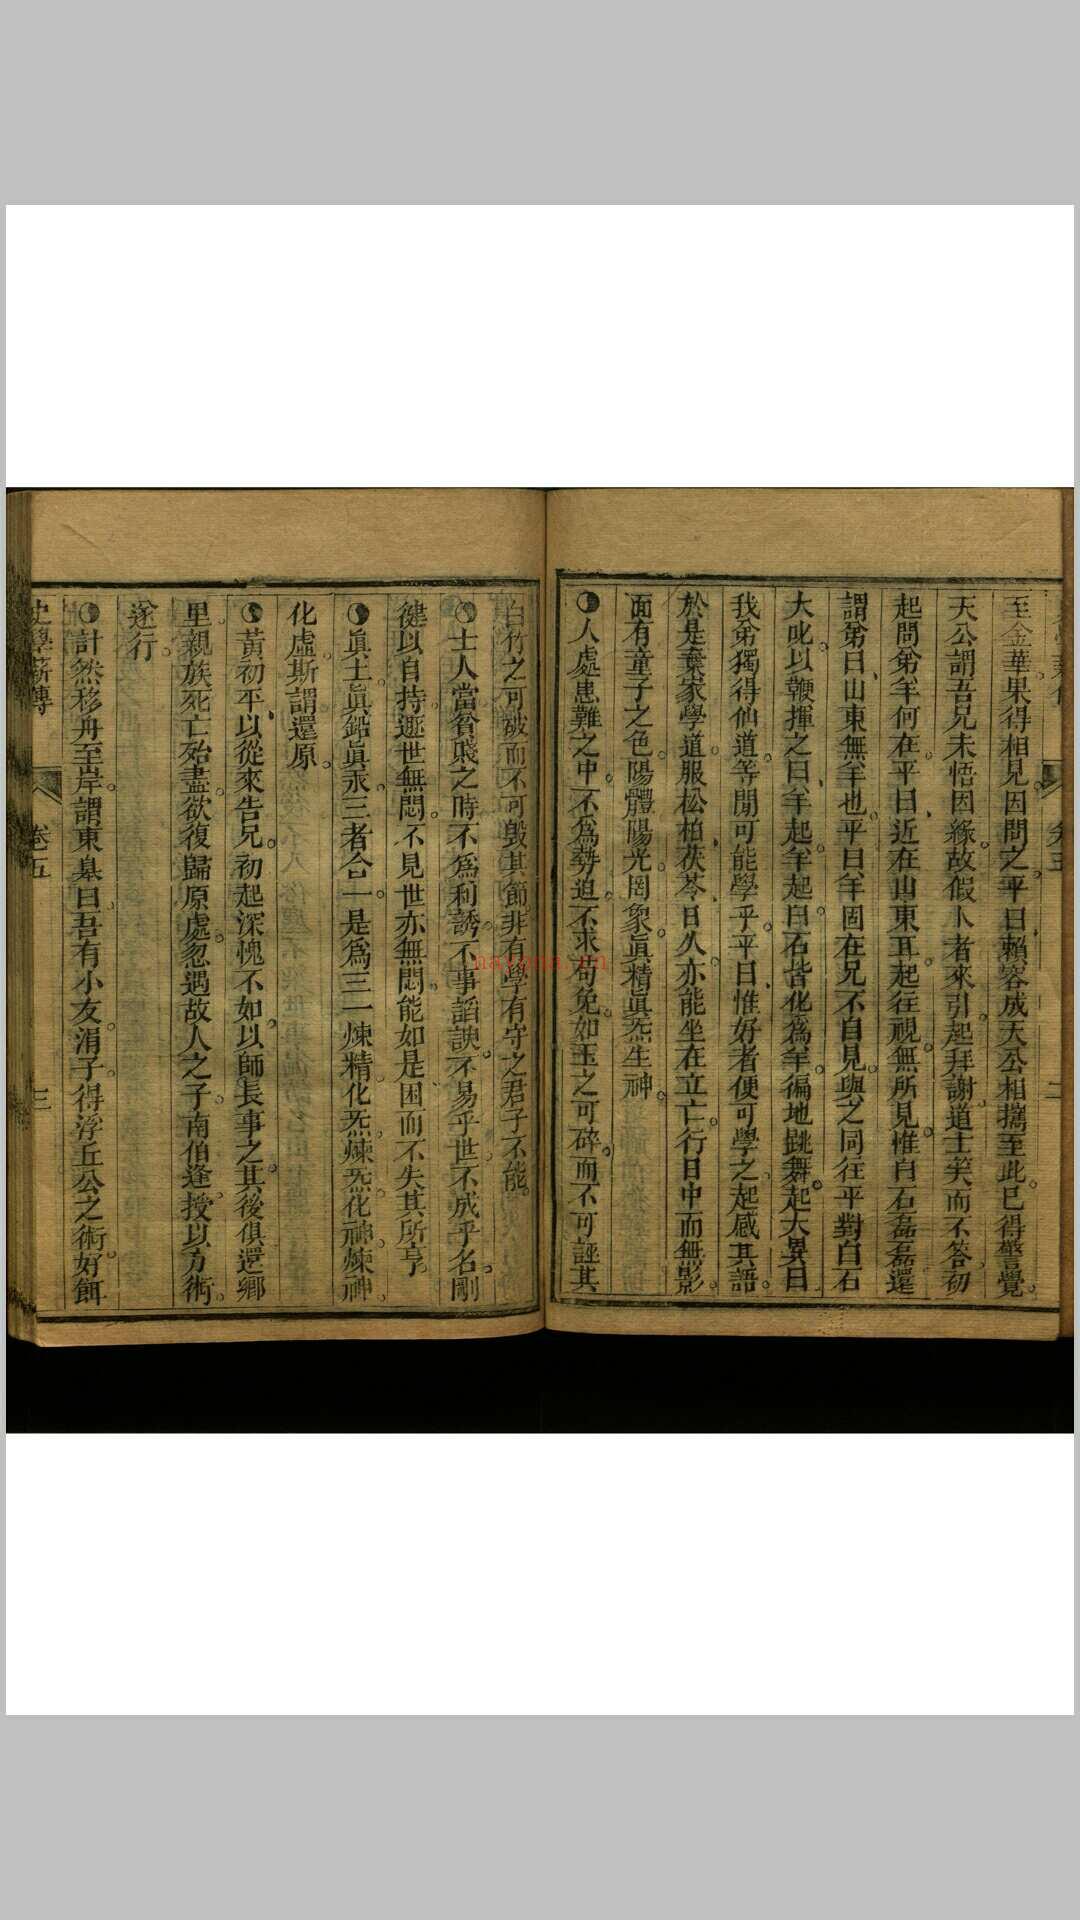 至金華果得相見因問之平曰賴容成天公相攜至此已得警覺
天公謂吾兄未悟因緣故假卜者來引起拜謝道士笑而不答初
起問弟羊何在平曰近在山東耳起往視無所見惟白石磊磊還
謂弟曰山東無羊也平曰羊固在兄不自見與之同往平對白石
大叱以鞭揮之曰羊起羊起白石皆化為羊徧地跳舞起大異曰
我弟獨得仙道等閒可能學乎平曰惟好者便可學之起感其語
於是棄家學道服松柏茯苓日久亦能坐在立亡行日中而無影
面有童子之色陽體陽光罔象眞精眞炁生神
人處患難之中不為勢迫不求苟免如玉之可碎而不可誣其
白竹之可破而不可毀其節非有學有守之君子不能
士人當貧賤之時不為利誘不事諂諛不易乎世不成乎名剛
健以自持遯世無悶不見世亦無悶能如是困而不失其所亨
眞土眞鉛眞汞三者合一是為三一煉精化炁煉炁化神煉神
化虛斯謂還原
黃初平以從來告兄初起深愧不如以師長事之其後俱還鄉
里親族死亡殆盡欲復歸原處忽遇故人之子南伯逢授以方術
遂行
計然移舟至岸謂東皋曰吾有小友涓子得浮丘公之術好餌
卷五
三
nayona.cn